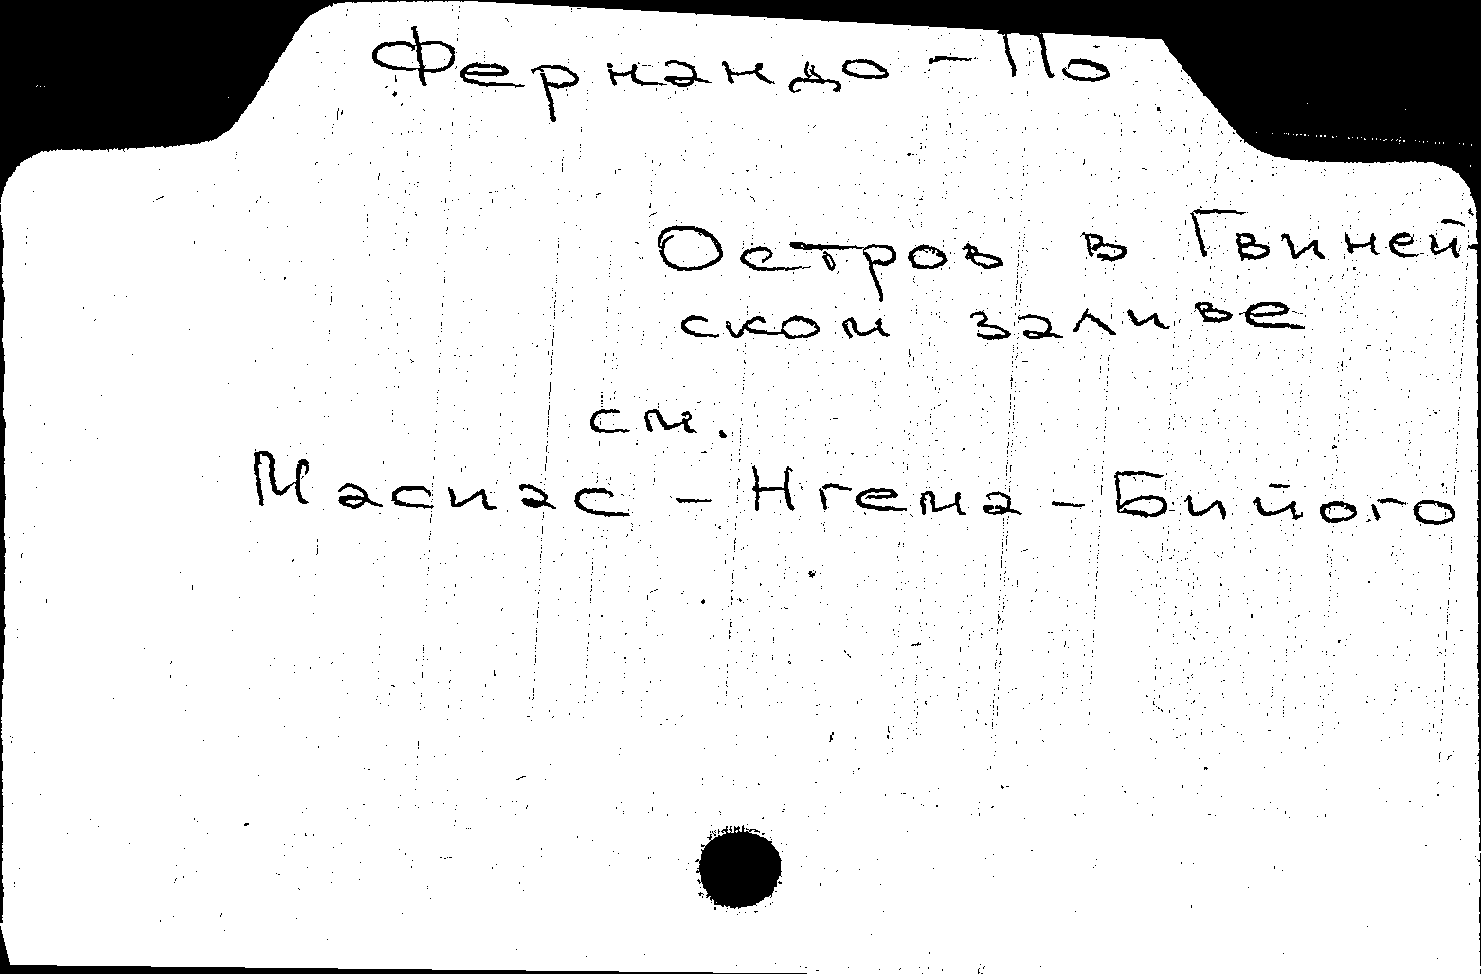 Фернандо - По
Остров в Гвиней-
ском заливе
см.
Масиас - Нгема - Бийого